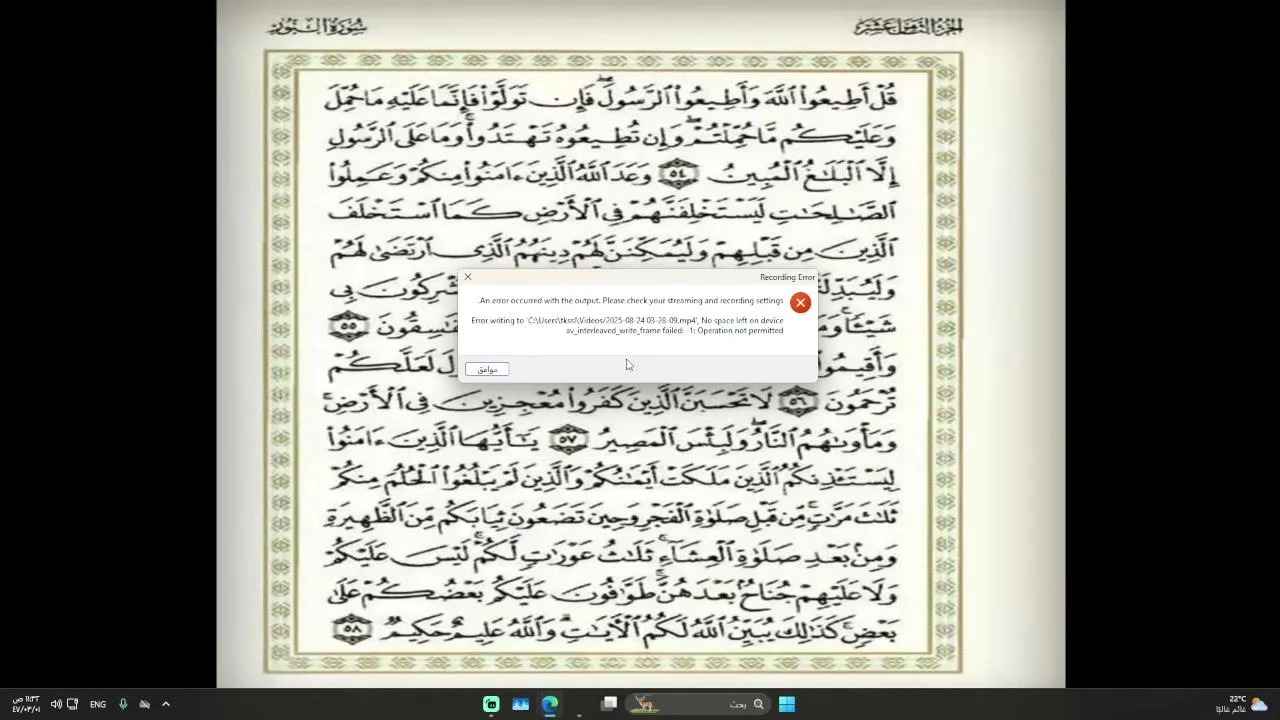 سُورَةُ النُّورِ
الجزء الثامن عشر
قُلْ أَطِيعُوا۟ ٱللَّهَ وَأَطِيعُوا۟ ٱلرَّسُولَ ۖ فَإِن تَوَلَّوْا۟ فَإِنَّمَا عَلَيْهِ مَا حُمِّلَ
وَعَلَيْكُم مَّا حُمِّلْتُمْ ۖ وَإِن تُطِيعُوهُ تَهْتَدُوا۟ ۚ وَمَا عَلَى ٱلرَّسُولِ
إِلَّا ٱلْبَلَٰغُ ٱلْمُبِينُ ٥٤ وَعَدَ ٱللَّهُ ٱلَّذِينَ ءَامَنُوا۟ مِنكُمْ وَعَمِلُوا۟
ٱلصَّٰلِحَٰتِ لَيَسْتَخْلِفَنَّهُمْ فِى ٱلْأَرْضِ كَمَا ٱسْتَخْلَفَ
ٱلَّذِينَ مِن قَبْلِهِمْ وَلَيُمَكِّنَنَّ لَهُمْ دِينَهُمُ ٱلَّذِى ٱرْتَضَىٰ لَهُمْ
Recording Error
An error occurred with the output. Please check your streaming and recording settings.
Error writing to 'C:\Users\tkssl\Videos/2025-08-24 03-28-09.mp4', No space left on device
av_interleaved_write_frame failed: -1: Operation not permitted
موافق
٥٥
وَأَقِيمُوا لَعَلَّكُمْ
تُرْحَمُونَ ٥٦ لَا تَحْسَبَنَّ ٱلَّذِينَ كَفَرُوا۟ مُعْجِزِينَ فِى ٱلْأَرْضِ ۚ
وَمَأْوَىٰهُمُ ٱلنَّارُ ۖ وَلَبِئْسَ ٱلْمَصِيرُ ٥٧ يَٰٓأَيُّهَا ٱلَّذِينَ ءَامَنُوا۟
لِيَسْتَـْٔذِنكُمُ ٱلَّذِينَ مَلَكَتْ أَيْمَٰنُكُمْ وَٱلَّذِينَ لَمْ يَبْلُغُوا۟ ٱلْحُلُمَ مِنكُمْ
ثَلَٰثَ مَرَّٰتٍ ۚ مِّن قَبْلِ صَلَوٰةِ ٱلْفَجْرِ وَحِينَ تَضَعُونَ ثِيَابَكُم مِّنَ ٱلظَّهِيرَةِ
وَمِنۢ بَعْدِ صَلَوٰةِ ٱلْعِشَآءِ ۚ ثَلَٰثُ عَوْرَٰتٍ لَّكُمْ ۚ لَيْسَ عَلَيْكُمْ
وَلَا عَلَيْهِمْ جُنَاحٌۢ بَعْدَهُنَّ ۚ طَوَّٰفُونَ عَلَيْكُم بَعْضُكُمْ عَلَىٰ
بَعْضٍ ۚ كَذَٰلِكَ يُبَيِّنُ ٱللَّهُ لَكُمُ ٱلْءَايَٰتِ ۗ وَٱللَّهُ عَلِيمٌ حَكِيمٌ ٥٨
١١:٣٢ ص
٤٧/٠٣/٠١
ENG
بحث
22°C
غائم غالبًا